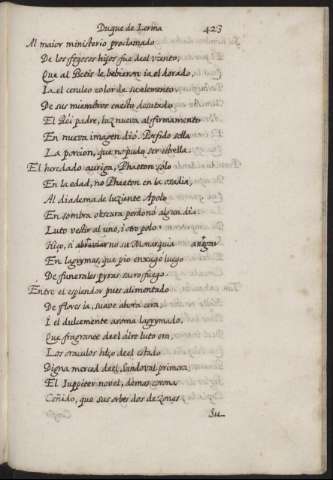 Duque de Lerma 423
Al maior ministerio proclamado
De los fogosos hijos fue deel viento,
Que al Betis le bebieron ia el dorado,
Ia el ceruleo color de su elemento
De sus miembros en esto desatado
El Rei padre, luz nueva al firmamento
En nueva imagen dió: Porfido sella
La porcion, que no pudo ser estrella.
El heredado auriga, Phaeton solo
En la edad, no Phaeton en la osadia,
Al diadema de luziente Apolo
En sombra obscura perdonó algun dia
Luto vestir al uno, i otro polo
Hizo, si abraviar no su Monarquia
En lagrymas, que pio enxugó luego
De funerales pyras sacro fuego.
Entre el esplendor pues alimentado
De flores ia, suave ahora cera,
I el dulcemente aroma lagrymado,
Que fragrante deel aire luto era
Los oraculos hizo deel estado
Digna merced deel, Sandoval primera
El Iuppiter novel, demas coronas
Ceñido, que sus orbes dos de zonas
Su